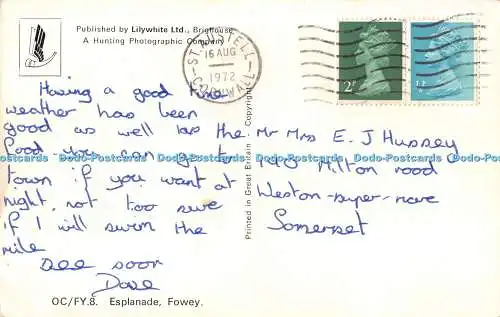 Published by Lilywhite Ltd., Brighouse
A Hunting Photographic Company
ST. AUSTELL
16 AUG
1972
CORNWALL
2P
Having a good time
weather has been
good as well as the
food you can go to
town if you want at
night, not too sure
if I will swim the
mile
See soon
Dave
Printed in Great Britain Copyright
Mr Mrs E. J Hussey
Milton road
Weston-super-mare
Somerset
Dodo-Postcards Dodo-Postcards Dodo-Postcards Dodo-Postcards Dodo-Postcards Dodo-Postcards
OC/FY.8. Esplanade, Fowey.